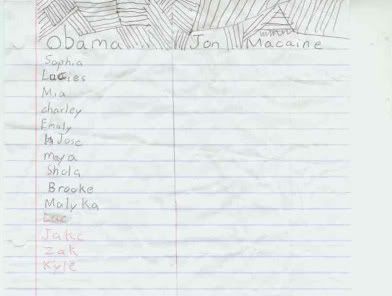 Obama Jon Macaine
Sophia
Mia
charley
Emaly
Jose
maya
Shola
Brooke
Malyka
Luc
Jake
Zak
Kyle